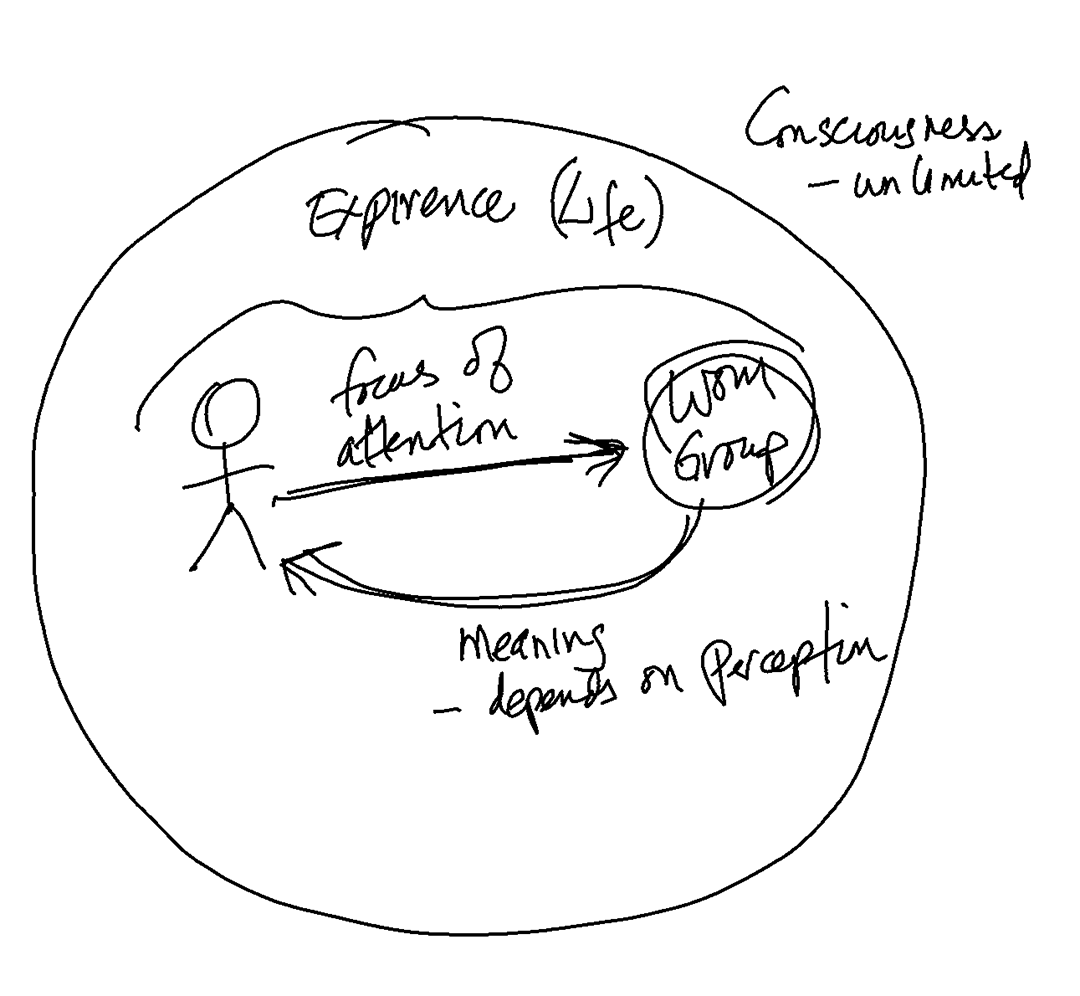 Consciousness
- unlimited
Expirence (Life)
focus of
attention
Work
Group
Meaning
- depends on perception